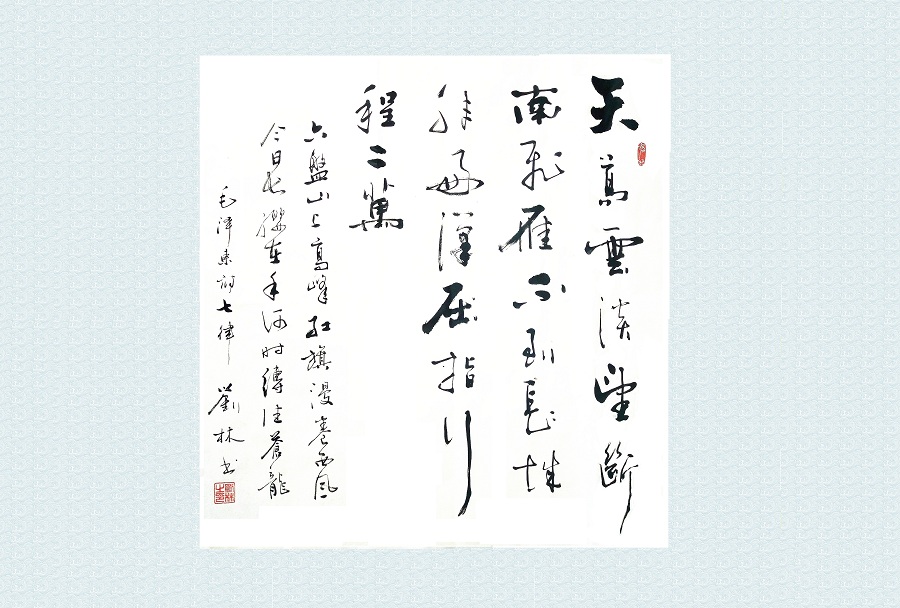 天高雲淡望斷
南飛雁不到長城
非好漢屈指行
程二萬
六盤山上高峰紅旗漫卷西風
今日長纓在手何时縛住蒼龍
毛泽東詞七律 劉林书